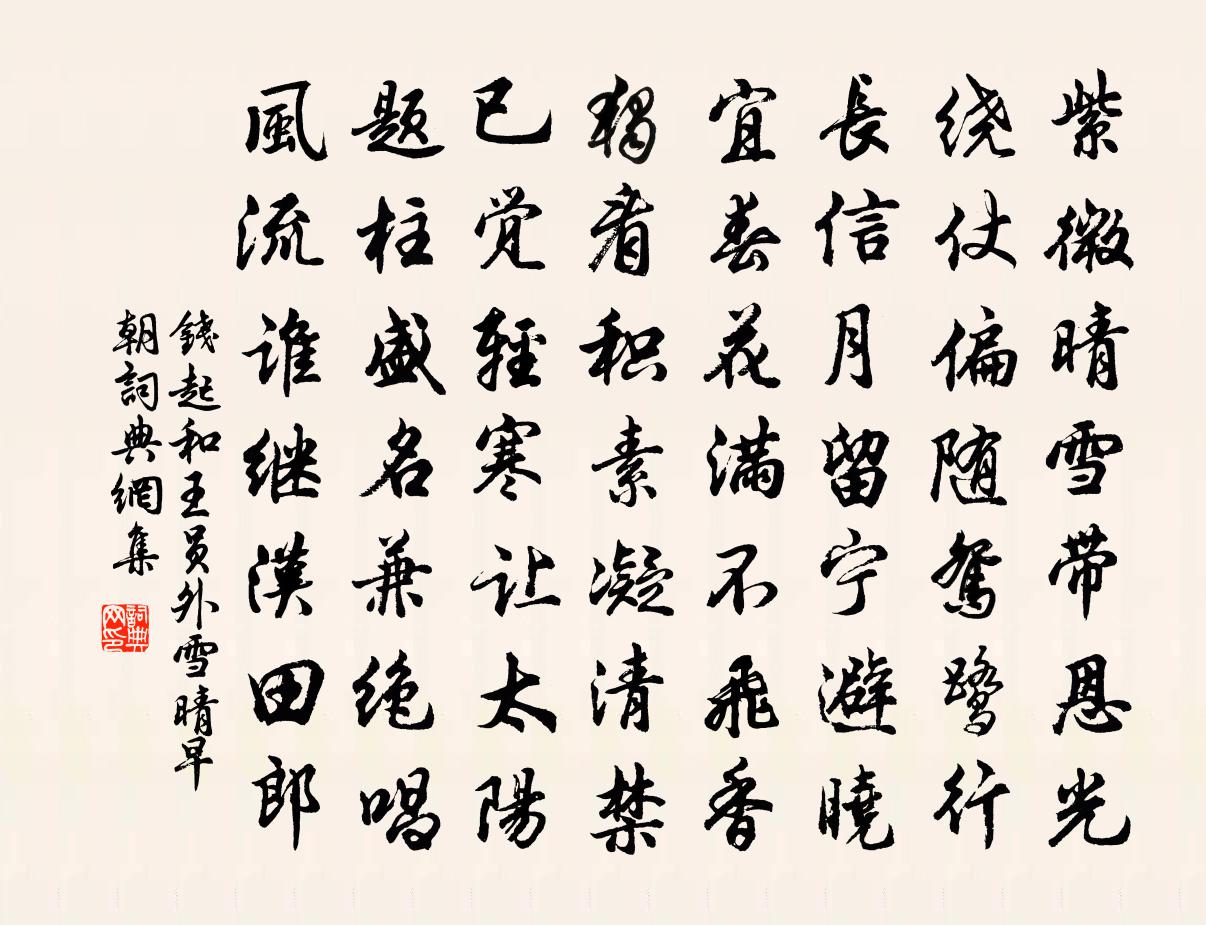 紫微晴雪带恩光
绕仗偏随鸳鹭行
長信月留宁避曉
宜春花满不飛香
獨看积素凝清禁
已觉輕寒让太陽
题柱盛名兼绝唱
風流谁继漢田郎
錢起和王员外雪晴早
朝詞典網集
詞典网印